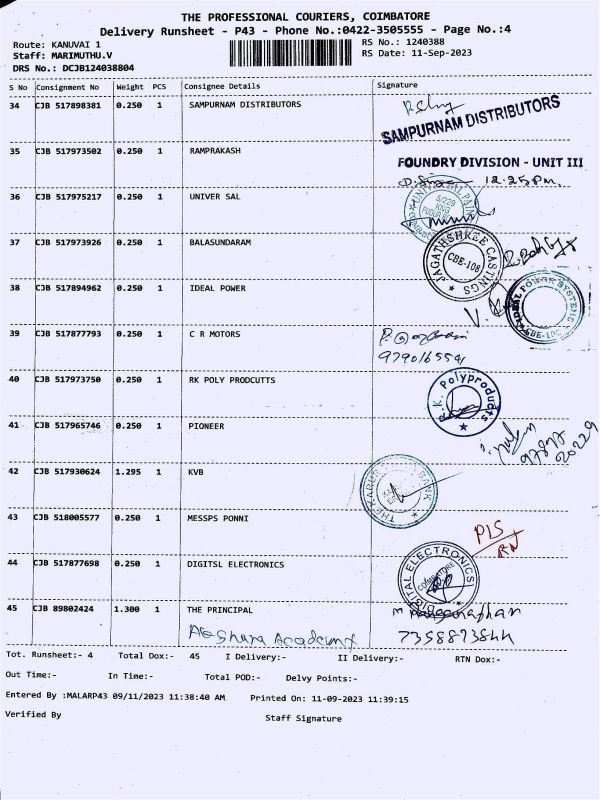 THE PROFESSIONAL COURIERS, COIMBATORE
Delivery Runsheet - P43 - Phone No.:0422-3505555 - Page No.:4
Route: KANUVAI 1 RS No.: 1240388
Staff: MARIMUTHU.V RS Date: 11-Sep-2023
DRS No.: DCJB124038804
S No Consignment No Weight PCS Consignee Details Signature
34 CJB 517898381 0.250 1 SAMPURNAM DISTRIBUTORS
SAMPURNAM DISTRIBUTORS
35 CJB 517973502 0.250 1 RAMPRAKASH FOUNDRY DIVISION - UNIT III
12.25pm
36 CJB 517975217 0.250 1 UNIVER SAL
5/229
37 CJB 517973926 0.250 1 BALASUNDARAM
JAGATHSHREE CASTINGS
CBE-108
38 CJB 517894962 0.250 1 IDEAL POWER
IDEAL POWER SYSTEMS
39 CJB 517877793 0.250 1 C R MOTORS
9790165591
40 CJB 517973750 0.250 1 RK POLY PRODCUTTS
R.K. Polyproducts
41 CJB 517965746 0.250 1 PIONEER
42 CJB 517930624 1.295 1 KVB
BANK
43 CJB 518005577 0.250 1 MESSPS PONNI
PLS
RN
44 CJB 517877698 0.250 1 DIGITSL ELECTRONICS
DIGITAL ELECTRONICS
COIMBATORE
45 CJB 89802424 1.300 1 THE PRINCIPAL
Akshara Academy 7358873844
Tot. Runsheet:- 4 Total Dox:- 45 I Delivery:- II Delivery:- RTN Dox:-
Out Time:- In Time:- Total POD:- Delvy Points:-
Entered By :MALARP43 09/11/2023 11:38:40 AM Printed On: 11-09-2023 11:39:15
Verified By Staff Signature